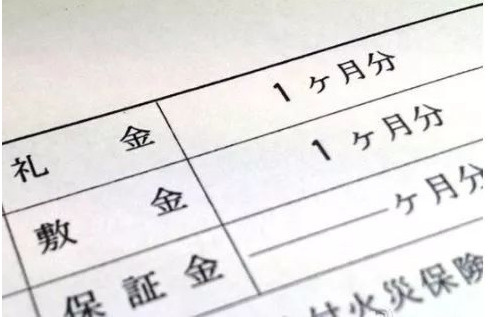 礼金 1ヶ月分
敷金 1ヶ月分
保証金 ――ヶ月分
付火災保険